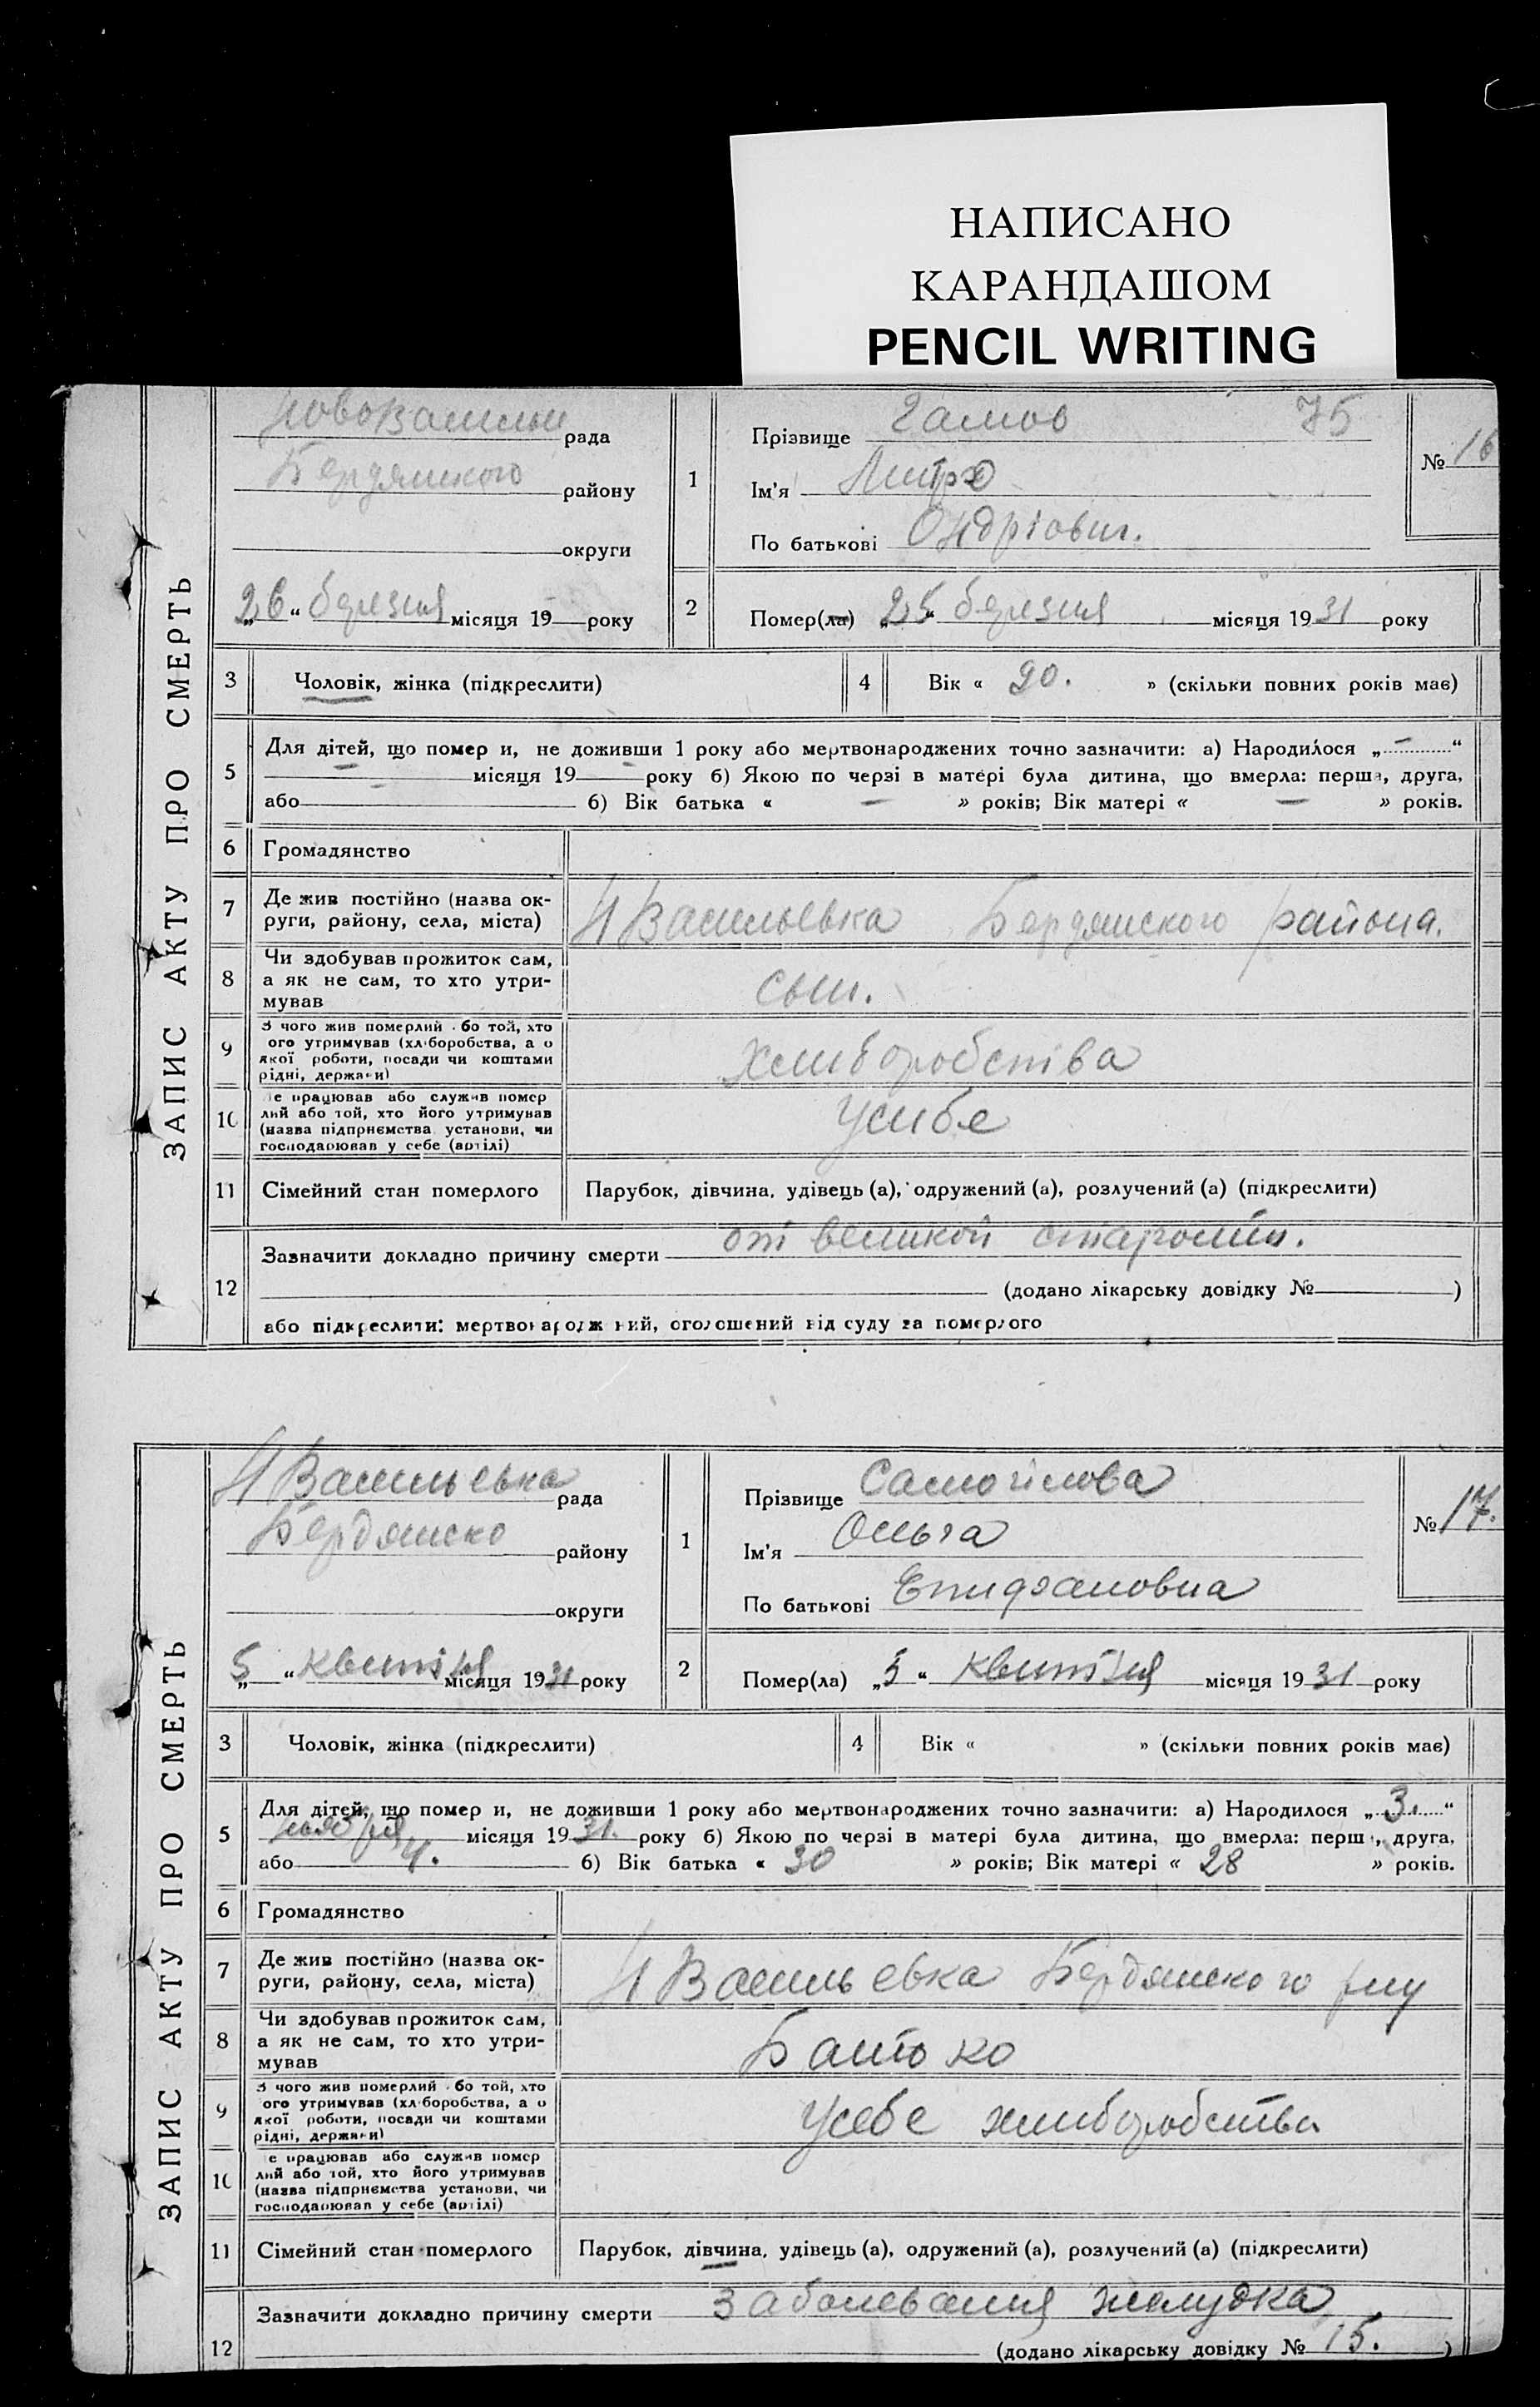 НАПИСАНО
КАРАНДАШОМ
PENCIL WRITING
ЗАПИС АКТУ ПРО СМЕРТЬ
рада
Бердянского району
округи
„26“ березня місяця 19 — року
1
Прізвище Гамов 75
Ім'я Митро
По батькові Ондріович.
№ 16
2
Помер(ла) „25“ березня місяця 1931 року
3 Чоловік, жінка (підкреслити)
4 Вік « 90. » (скільки повних років має)
5 Для дітей, що помер и, не доживши 1 року або мертвонароджених точно зазначити: а) Народилося „ — “
— місяця 19 — року б) Якою по черзі в матері була дитина, що вмерла: перша, друга,
або 6) Вік батька « — » років; Вік матері « — » років.
6 Громадянство
7 Де жив постійно (назва ок-
руги, району, села, міста)
Н Васильевка Бердянского района.
8 Чи здобував прожиток сам,
а як не сам, то хто утри-
мував
сын.
9 З чого жив померлий бо той, хто
ого утримував (хліборобства, а о
якої роботи, посади чи коштами
рідні, держави)
Хлиборобства
10 е працював або служив помер
лий або той, хто його утримував
(назва підприємства установи, чи
господарював у себе (артілі)
Усибе
11 Сімейний стан померлого
Парубок, дівчина, удівець (а), одружений (а), розлучений (а) (підкреслити)
12 Зазначити докладно причину смерти от великой старости.
(додано лікарську довідку № )
або підкреслити: мертвонароджений, оголошений від суду за померлого
ЗАПИС АКТУ ПРО СМЕРТЬ
Н Васильевка рада
Бердянско району
округи
„5“ квитня місяця 1931 року
1
Прізвище Самойлова
Ім'я Ольга
По батькові Епифановна
№ 17.
2
Помер(ла) „5“ квитня місяця 1931 року
3 Чоловік, жінка (підкреслити)
4 Вік « » (скільки повних років має)
5 Для дітей, що помер и, не доживши 1 року або мертвонароджених точно зазначити: а) Народилося „3.“
місяця 1931. року б) Якою по черзі в матері була дитина, що вмерла: перш, друга,
або 4. 6) Вік батька « 30 » років; Вік матері « 28 » років.
6 Громадянство
7 Де жив постійно (назва ок-
руги, району, села, міста)
Н Васильевка Бердянского
8 Чи здобував прожиток сам,
а як не сам, то хто утри-
мував
Батько
9 З чого жив померлий бо той, хто
ого утримував (хліборобства, а о
якої роботи, посади чи коштами
рідні, держави)
Усебе хлиборобства
10 е працював або служив помер
лий або той, хто його утримував
(назва підприємства установи, чи
господарював у себе (артілі)
11 Сімейний стан померлого
Парубок, дівчина, удівець (а), одружений (а), розлучений (а) (підкреслити)
12 Зазначити докладно причину смерти Заболевания желудка
(додано лікарську довідку № 15. )